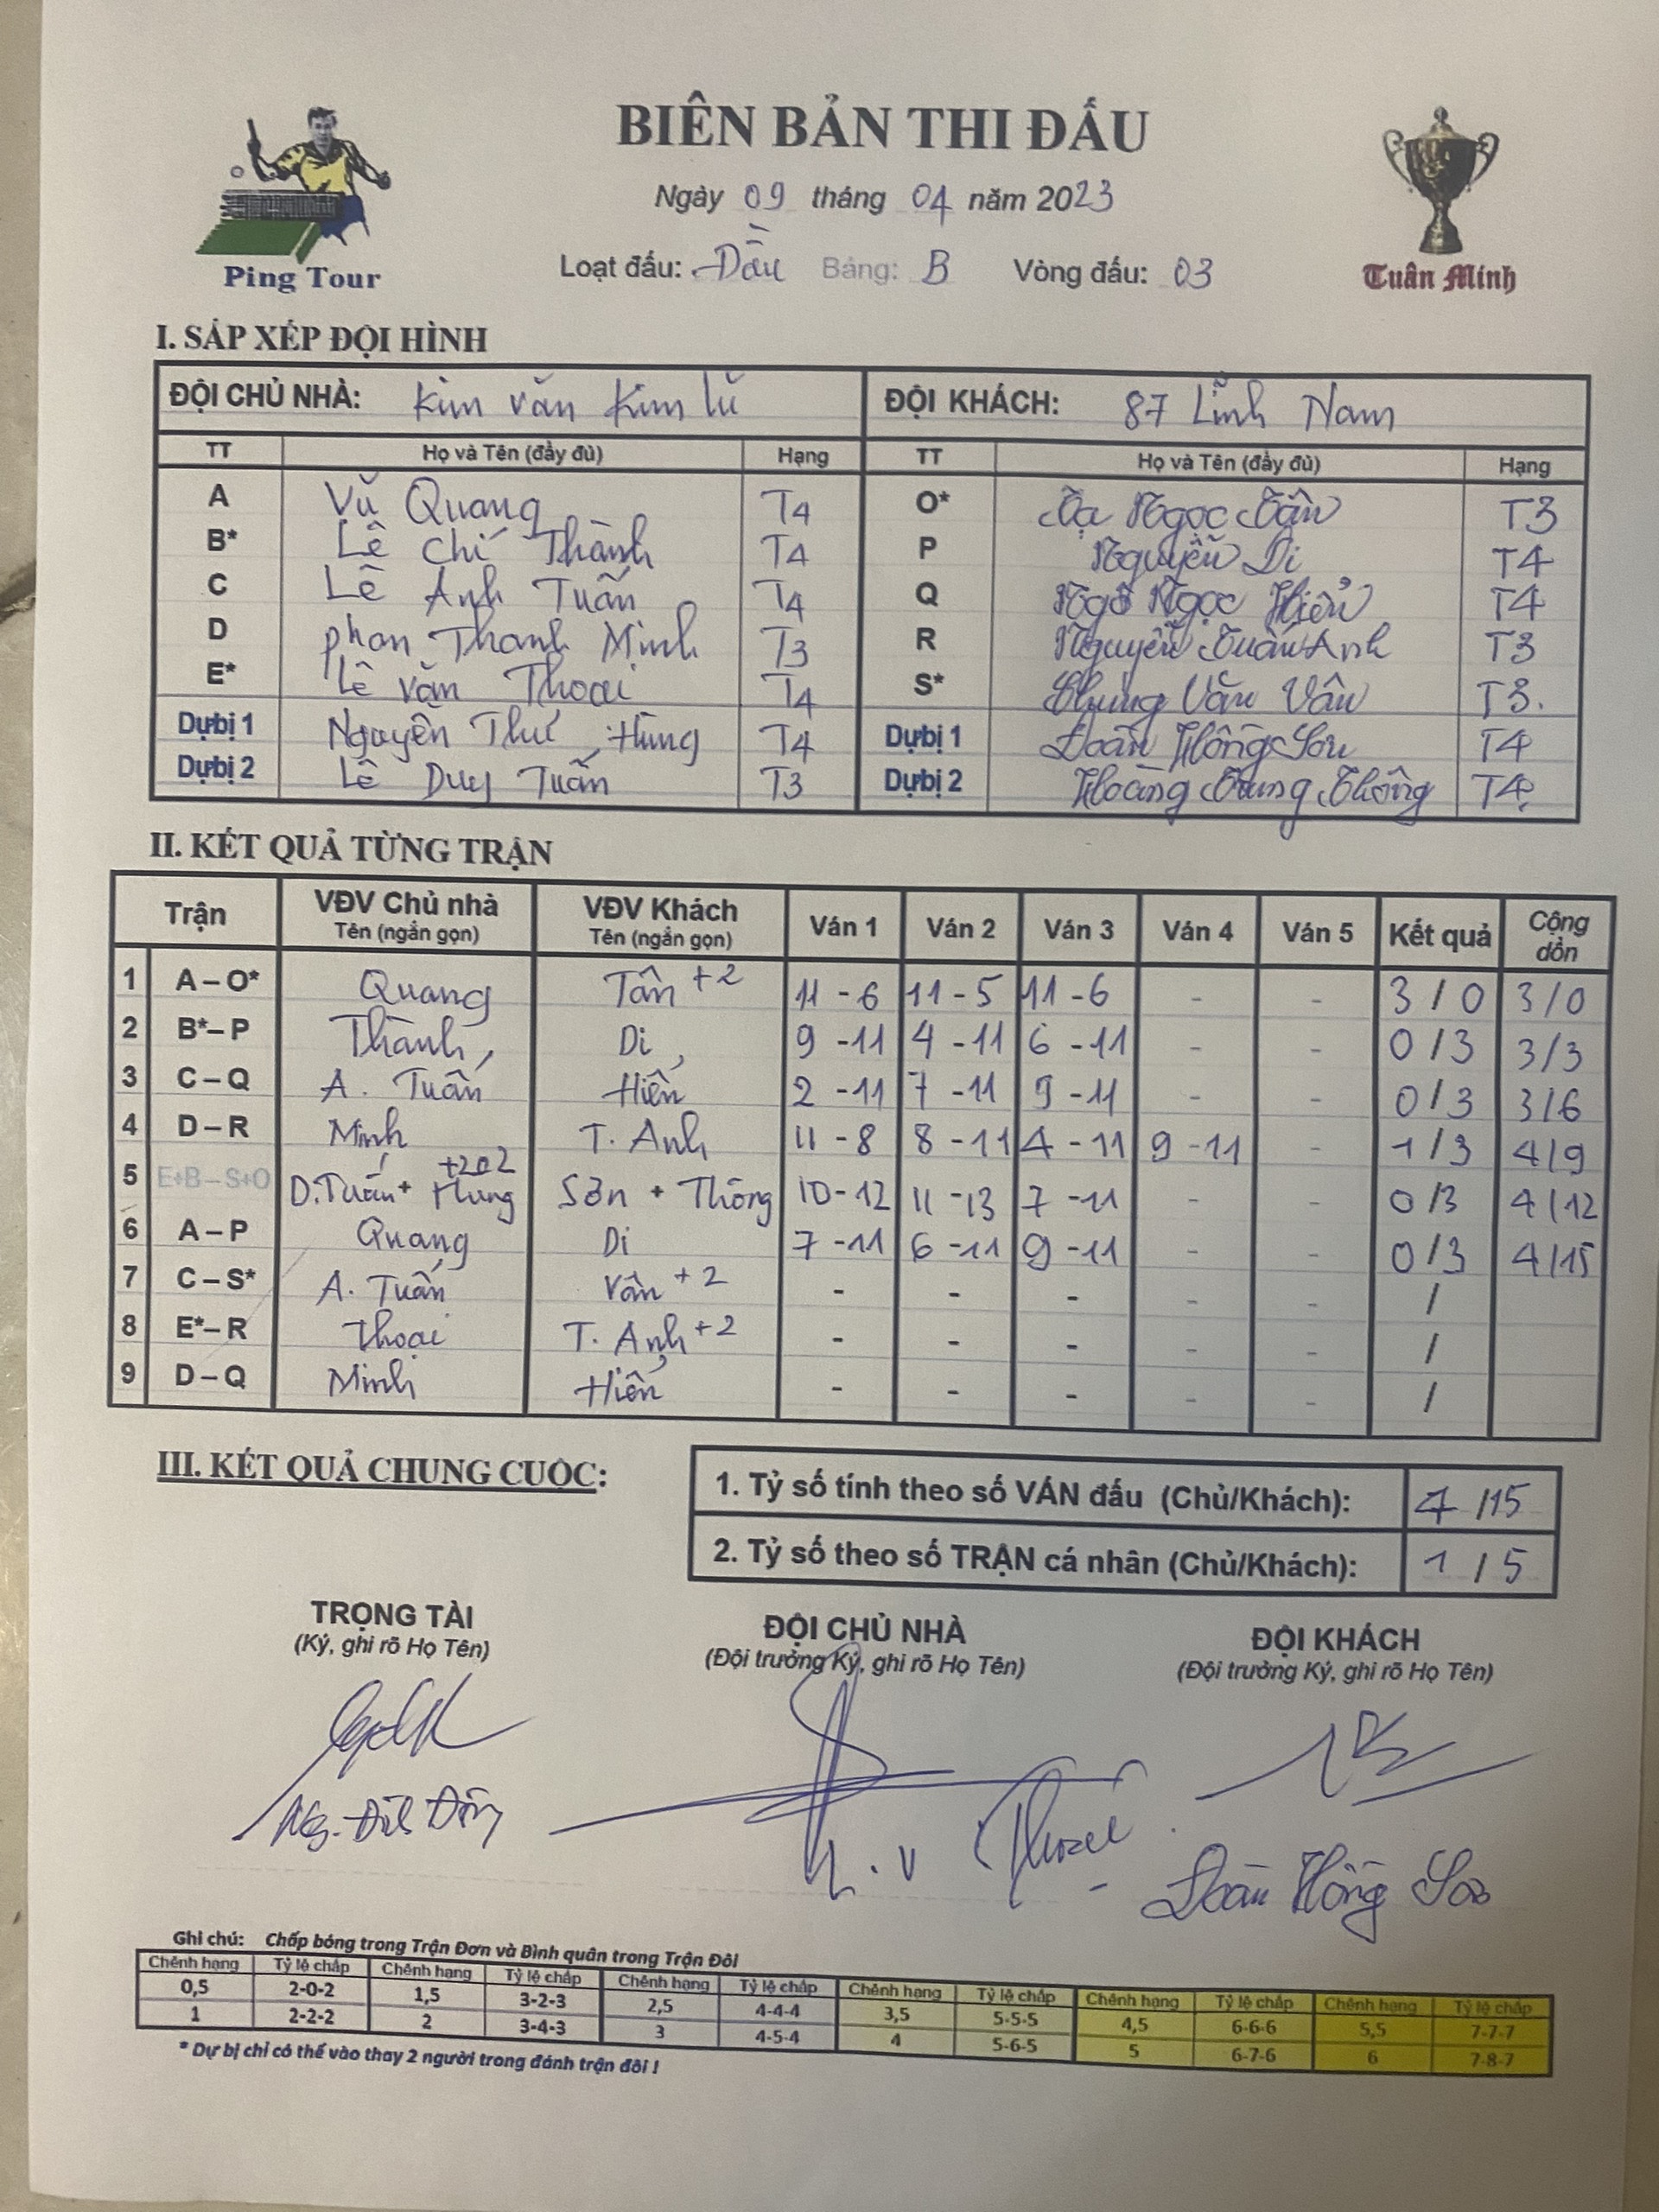 BIÊN BẢN THI ĐẤU
Ngày 09 tháng 04 năm 2023
Loạt đấu: Đầu Bảng: B Vòng đấu: 03
Ping Tour
Tuấn Minh
I. SẮP XẾP ĐỘI HÌNH
ĐỘI CHỦ NHÀ: Kim văn Kim lũ ĐỘI KHÁCH: 87 Lĩnh Nam
TT Họ và Tên (đầy đủ) Hạng TT Họ và Tên (đầy đủ) Hạng
A Vũ Quang T4 O* Tạ Ngọc Tân T3
B* Lê Chí Thành T4 P Nguyễn Di T4
C Lê Anh Tuấn T4 Q Ngô Ngọc Hiển T4
D phan Thanh Minh T3 R Nguyễn Tuấn Anh T3
E* Lê văn Thoại T4 S* Phùng Văn Vân T3.
Dự bị 1 Nguyễn Thư Hùng T4 Dự bị 1 Đoàn Hồng Sơn T4
Dự bị 2 Lê Duy Tuấn T3 Dự bị 2 Hoàng Trung Thông T4
II. KẾT QUẢ TỪNG TRẬN
Trận VĐV Chủ nhà Tên (ngắn gọn) VĐV Khách Tên (ngắn gọn) Ván 1 Ván 2 Ván 3 Ván 4 Ván 5 Kết quả Cộng dồn
1 A – O* Quang Tân +2 11 - 6 11 - 5 11 - 6 - - 3 / 0 3/0
2 B* – P Thành Di 9 - 11 4 - 11 6 - 11 - - 0 / 3 3/3
3 C – Q A. Tuấn Hiển 2 - 11 7 - 11 9 - 11 - - 0 / 3 3/6
4 D – R Minh T. Anh 11 - 8 8 - 11 4 - 11 9 - 11 - 1 / 3 4/9
5 E+B – S+O D.Tuấn + Hùng +202 Sơn + Thông 10 - 12 11 - 13 7 - 11 - - 0 / 3 4/12
6 A – P Quang Di 7 - 11 6 - 11 9 - 11 - - 0 / 3 4/15
7 C – S* A. Tuấn Vân +2 - - - - - /
8 E* – R Thoại T. Anh +2 - - - - - /
9 D – Q Minh Hiển - - - - - /
III. KẾT QUẢ CHUNG CUỘC:
1. Tỷ số tính theo số VÁN đấu (Chủ/Khách): 4 /15
2. Tỷ số theo số TRẬN cá nhân (Chủ/Khách): 1 / 5
TRỌNG TÀI ĐỘI CHỦ NHÀ ĐỘI KHÁCH
(Ký, ghi rõ Họ Tên) (Đội trưởng Ký, ghi rõ Họ Tên) (Đội trưởng Ký, ghi rõ Họ Tên)
L.v Thoại
Đoàn Hồng Sơn
Ghi chú: Chấp bóng trong Trận Đơn và Bình quân trong Trận Đôi
Chênh hạng Tỷ lệ chấp Chênh hạng Tỷ lệ chấp Chênh hạng Tỷ lệ chấp Chênh hạng Tỷ lệ chấp Chênh hạng Tỷ lệ chấp Chênh hạng Tỷ lệ chấp
0,5 2-0-2 1,5 3-2-3 2,5 4-4-4 3,5 5-5-5 4,5 6-6-6 5,5 7-7-7
1 2-2-2 2 3-4-3 3 4-5-4 4 5-6-5 5 6-7-6 6 7-8-7
* Dự bị chỉ có thể vào thay 2 người trong đánh trận đôi !